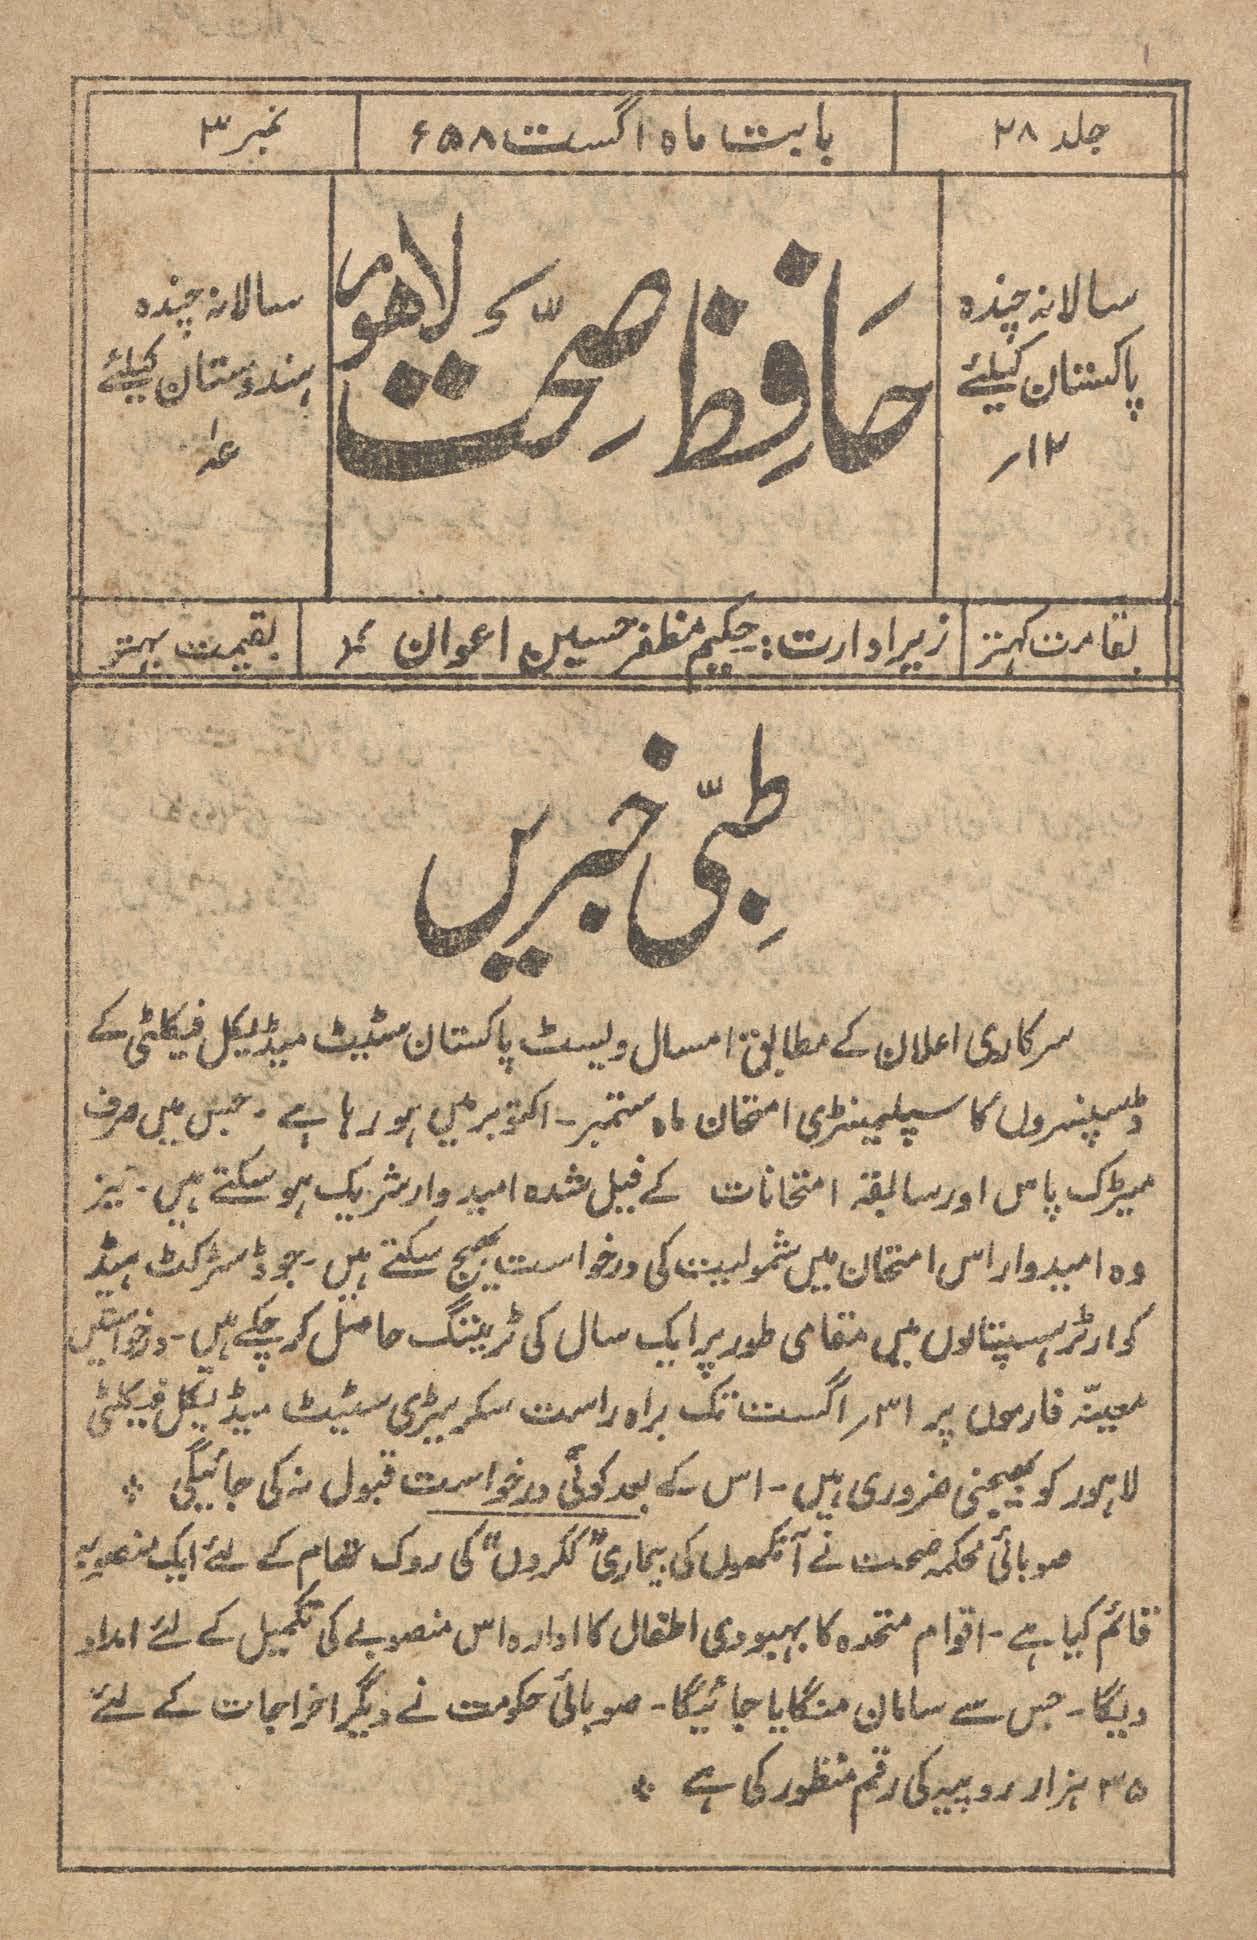 جلد ۲۸
بابت ماہ اگست ۵۸ء
نمبر ۳
سالانہ چندہ
پاکستان کیلئے
۱۲ر
حافظِ صحّت لاہور
سالانہ چندہ
ہندوستان کیلئے
بقامت کہتر
زیر ادارت: حکیم مظفر حسین اعوان
بقیمت بہتر
طِبّی خبریں
سرکاری اعلان کے مطابق امسال ویسٹ پاکستان سٹیٹ میڈیکل فیکلٹی کے
ڈسپنسروں کا سپلیمینٹری امتحان ماہ ستمبر۔ اکتوبر میں ہو رہا ہے۔ جس میں صرف
میٹرک پاس اور سابقہ امتحانات کے فیل شدہ امیدوار شریک ہو سکتے ہیں۔ نیز
وہ امیدوار اس امتحان میں شمولیت کی درخواست بھیج سکتے ہیں۔ جو ڈسٹرکٹ ہیڈ
کوارٹر ہسپتالوں میں مقامی طور پر ایک سال کی ٹریننگ حاصل کر چکے ہیں۔ درخواستیں
معینّہ فارموں پر ۳۱ر اگست تک براہ راست سکریٹری سٹیٹ میڈیکل فیکلٹی
لاہور کو بھیجنی ضروری ہیں۔ اس کے بعد کوئی درخواست قبول نہ کی جائیگی ٭
صوبائی محکمہ صحت نے آنکھوں کی بیماری "ککروں" کی روک تھام کے لئے ایک منصوبہ
قائم کیا ہے۔ اقوام متحدہ کا بہبودی اطفال کا ادارہ اس منصوبے کی تکمیل کے لئے امداد
دیگا۔ جس سے سامان منگایا جائیگا۔ صوبائی حکومت نے دیگر اخراجات کے لئے
۳۵ ہزار روپیہ کی رقم منظور کی ہے ٭